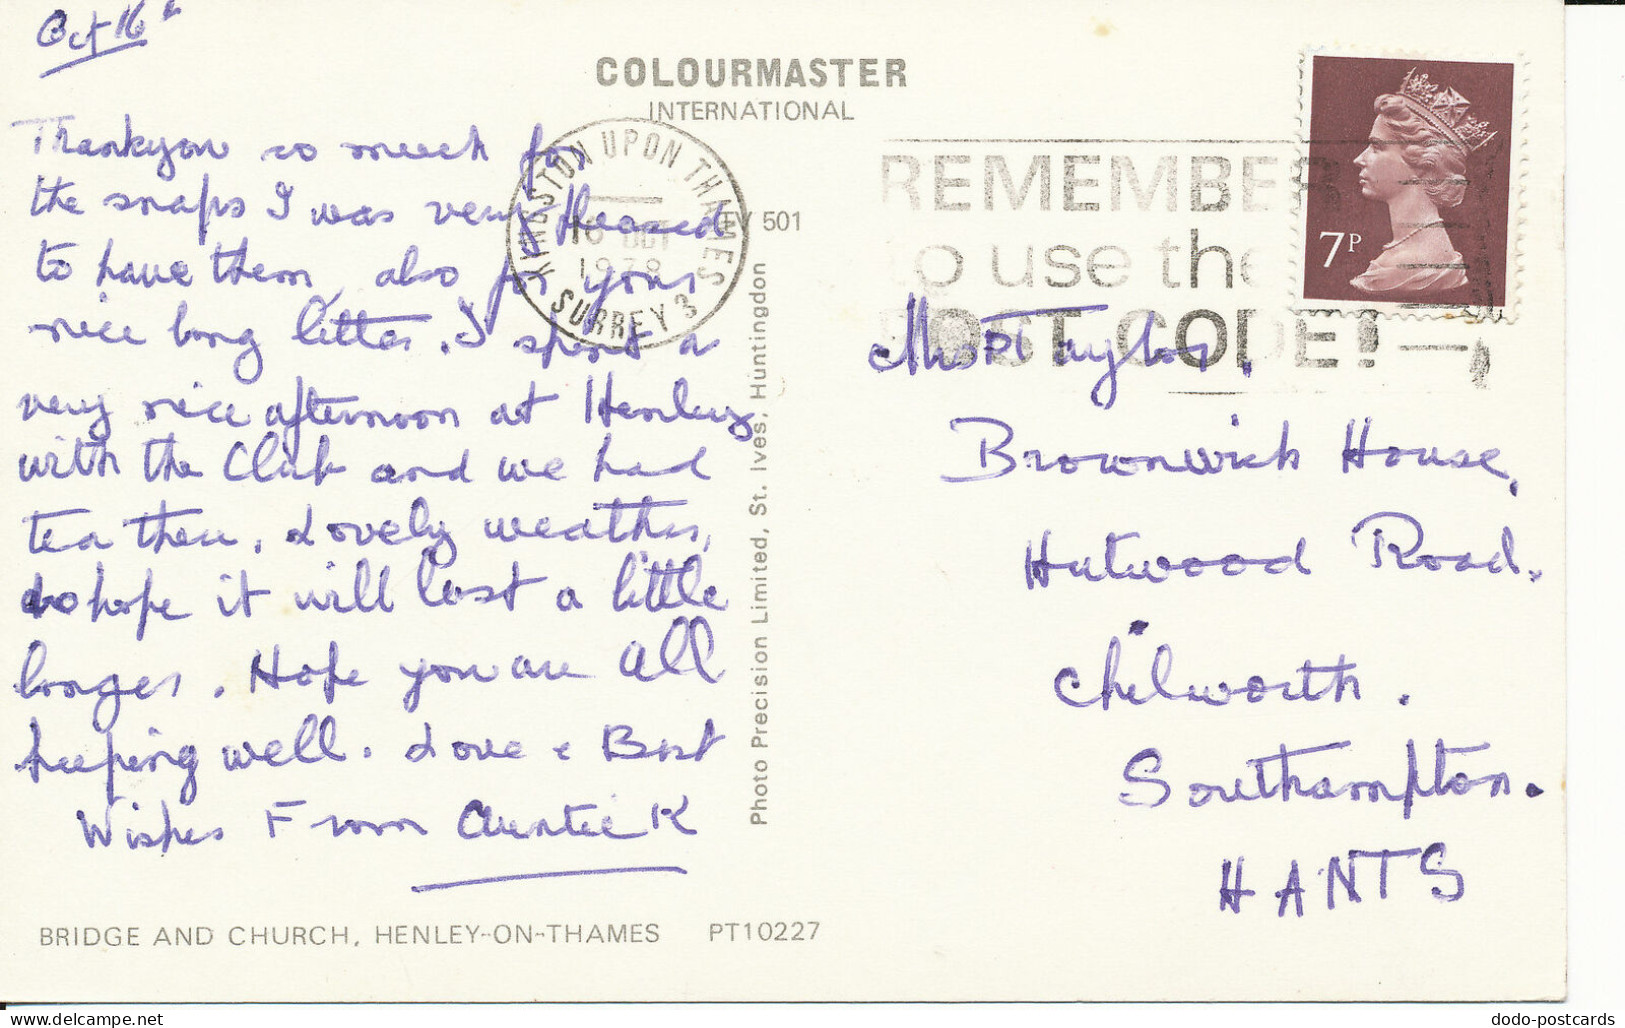 Oct 16th
COLOURMASTER
INTERNATIONAL
Thankyou so much for
the snaps I was very pleased
to have them, also for your
nice long letter. I spent a
very nice afternoon at Henley
with the Club and we had
tea there. Lovely weather,
do hope it will last a little
longer. Hope you are all
keeping well. Love & Best
Wishes From Auntie K
BRIDGE AND CHURCH, HENLEY-ON-THAMES PT10227
KINGSTON UPON THAMES
16 OCT
1978
SURREY 3
EV 501
Photo Precision Limited, St. Ives, Huntingdon
REMEMBER
to use the
POST CODE!
7P
Mrs P Taylor.
Brownwich House,
Hutwood Road.
Chilworth.
Southampton.
HANTS
dodo-postcards